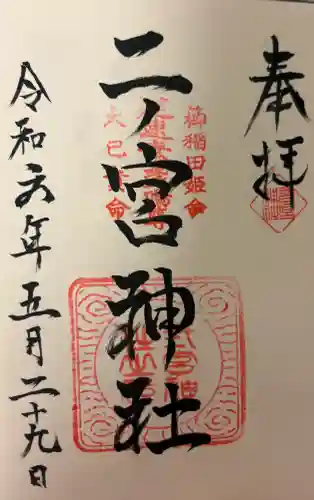 奉拝
櫛稲田姫命
二ノ宮神社
大己貴命
令和六年五月二十九日